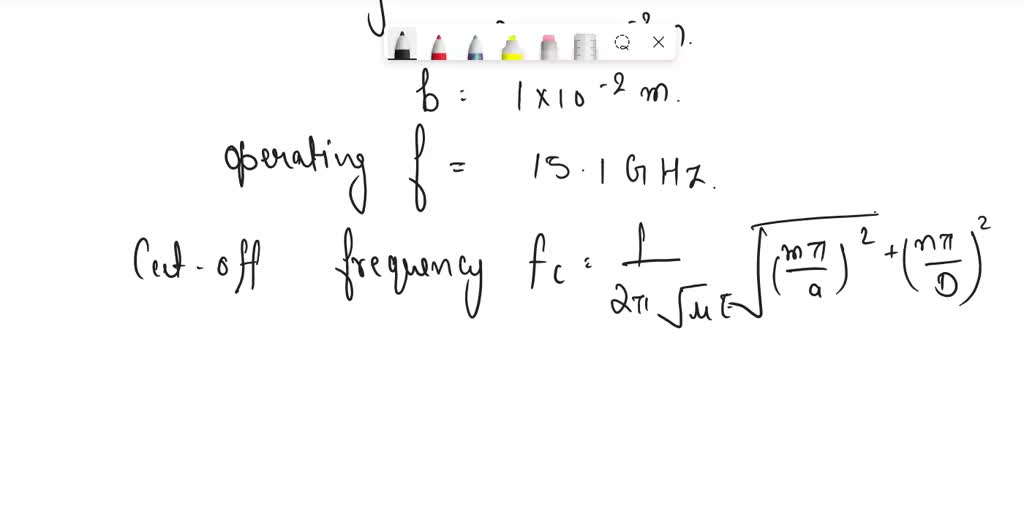 b = 1 × 10⁻² m.
operating f = 15.1 GHz.
Cut-off frequency fc = 1/(2π√με) √((mπ/a)² + (nπ/D)²)